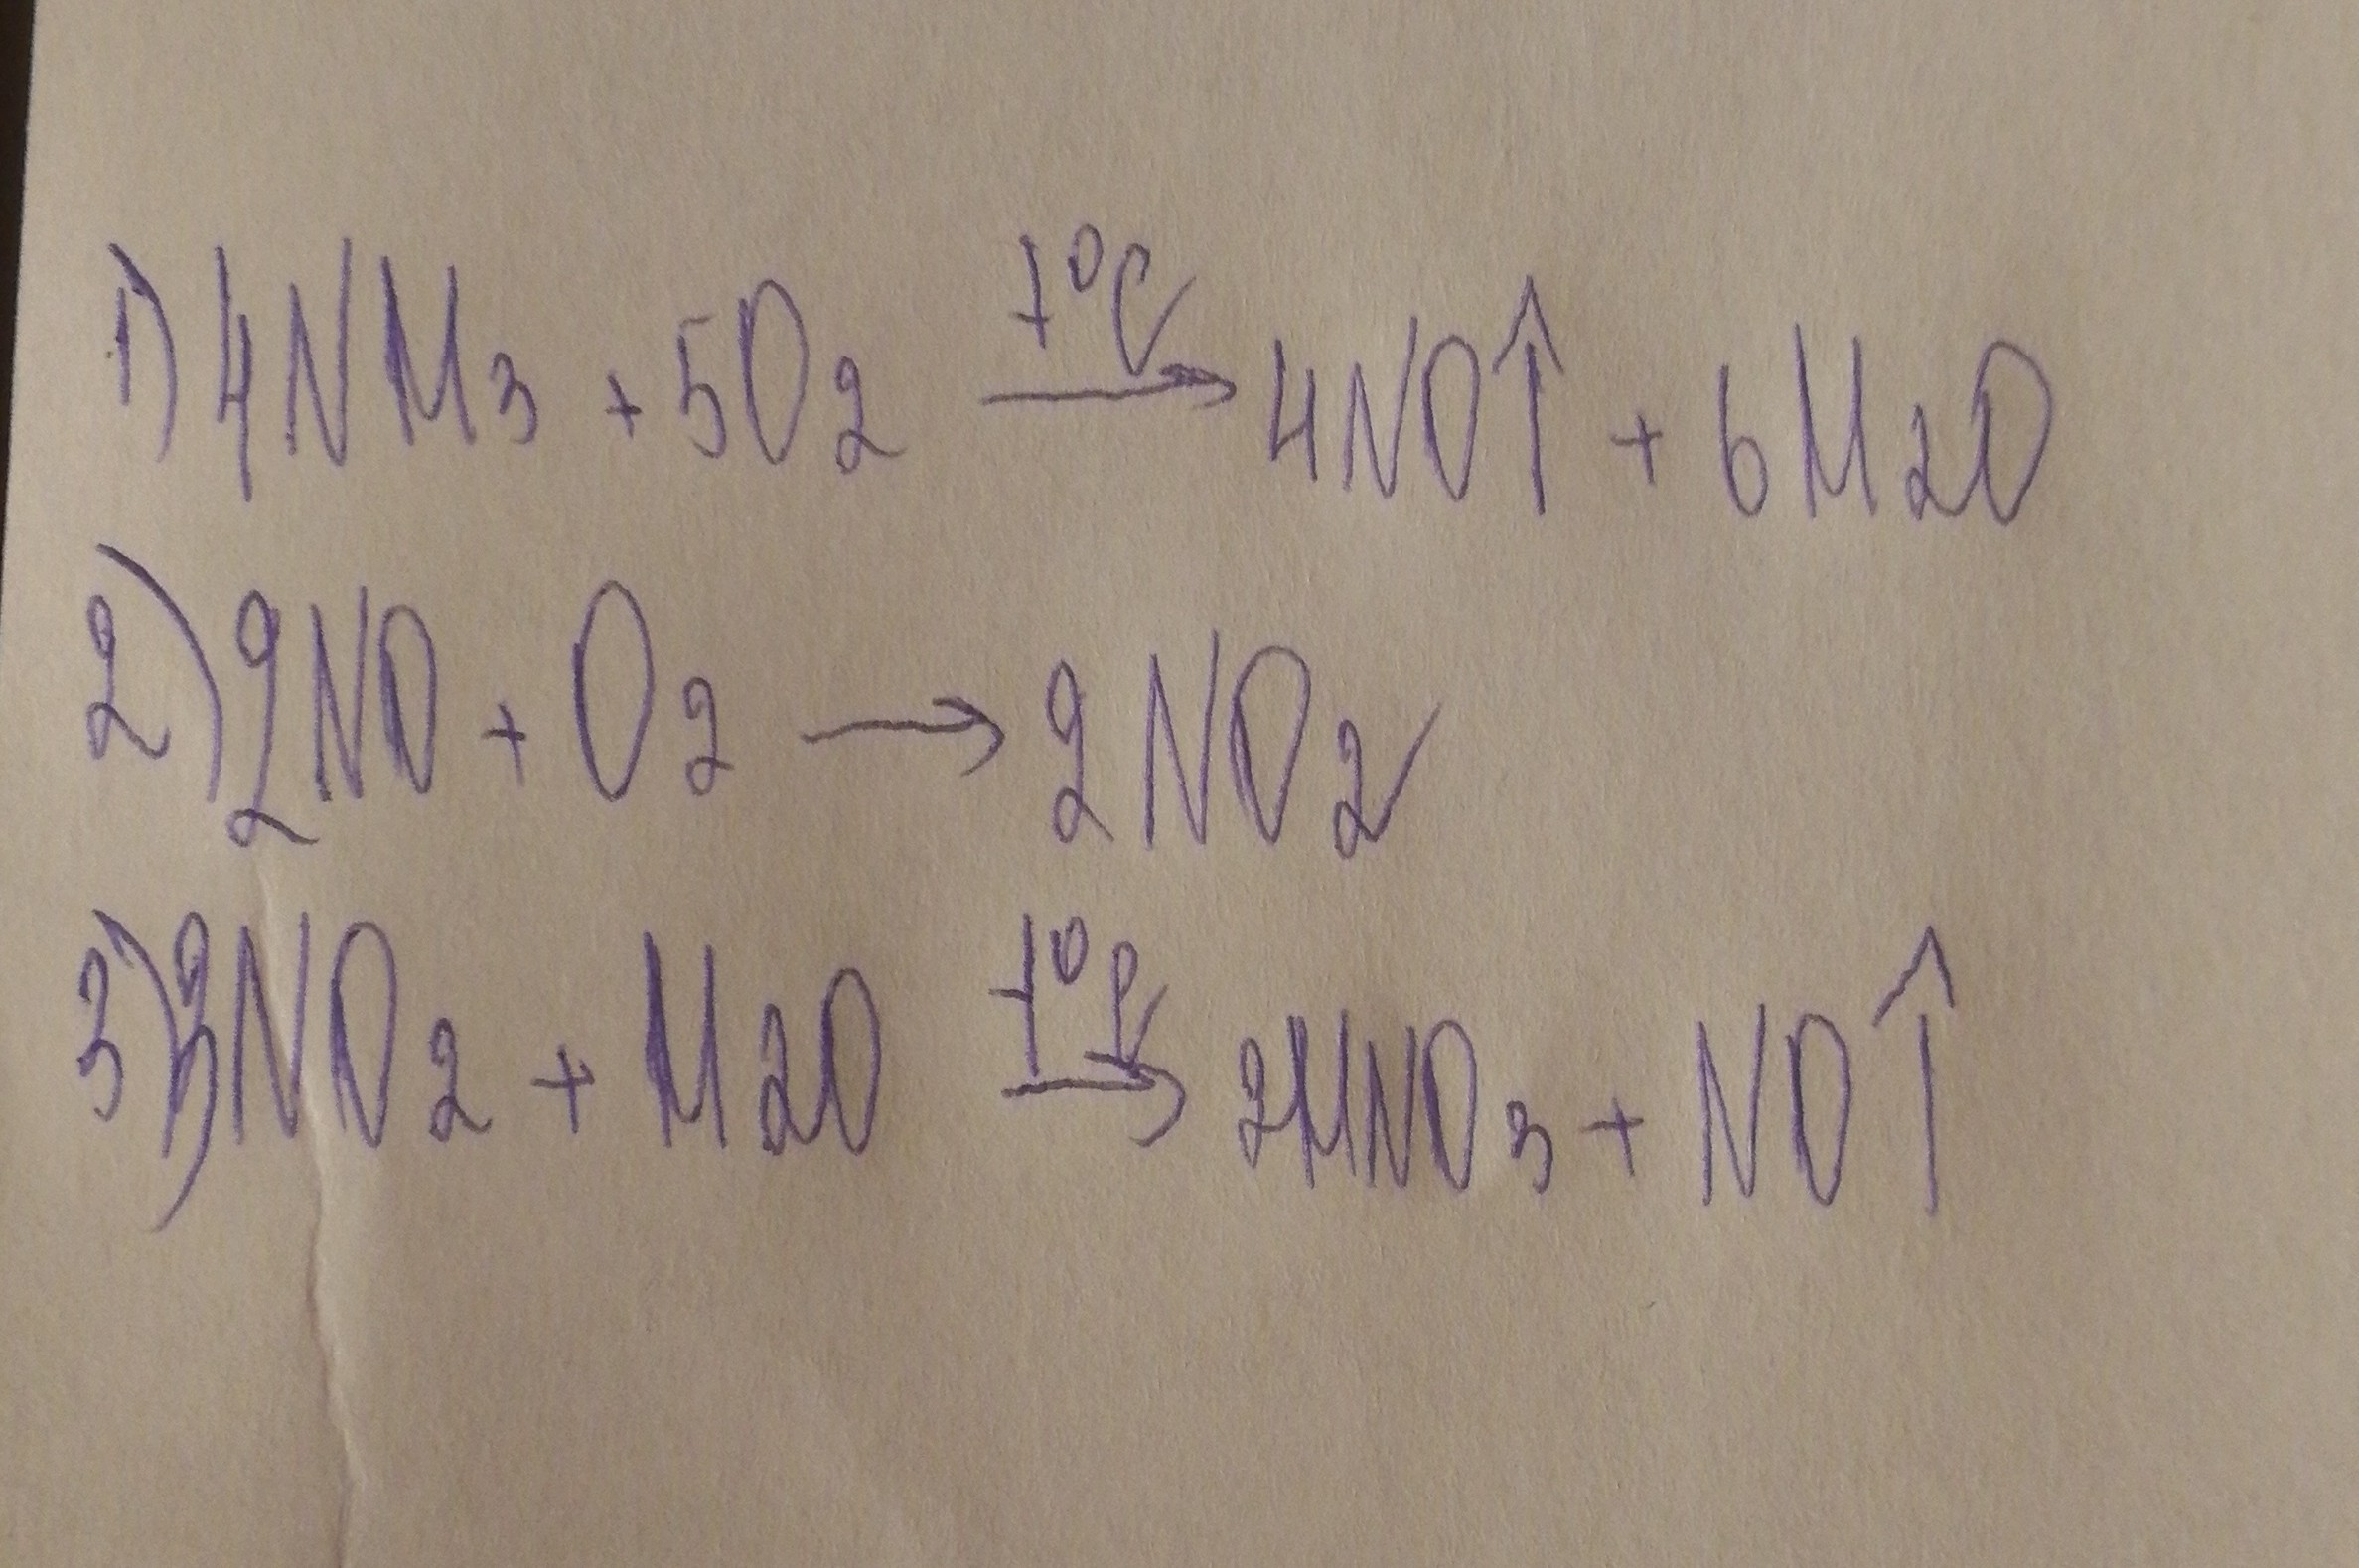 1) 4NH3 + 5O2 t°C → 4NO↑ + 6H2O
2) 2NO + O2 → 2NO2
3) 3NO2 + H2O t°C → 2HNO3 + NO↑